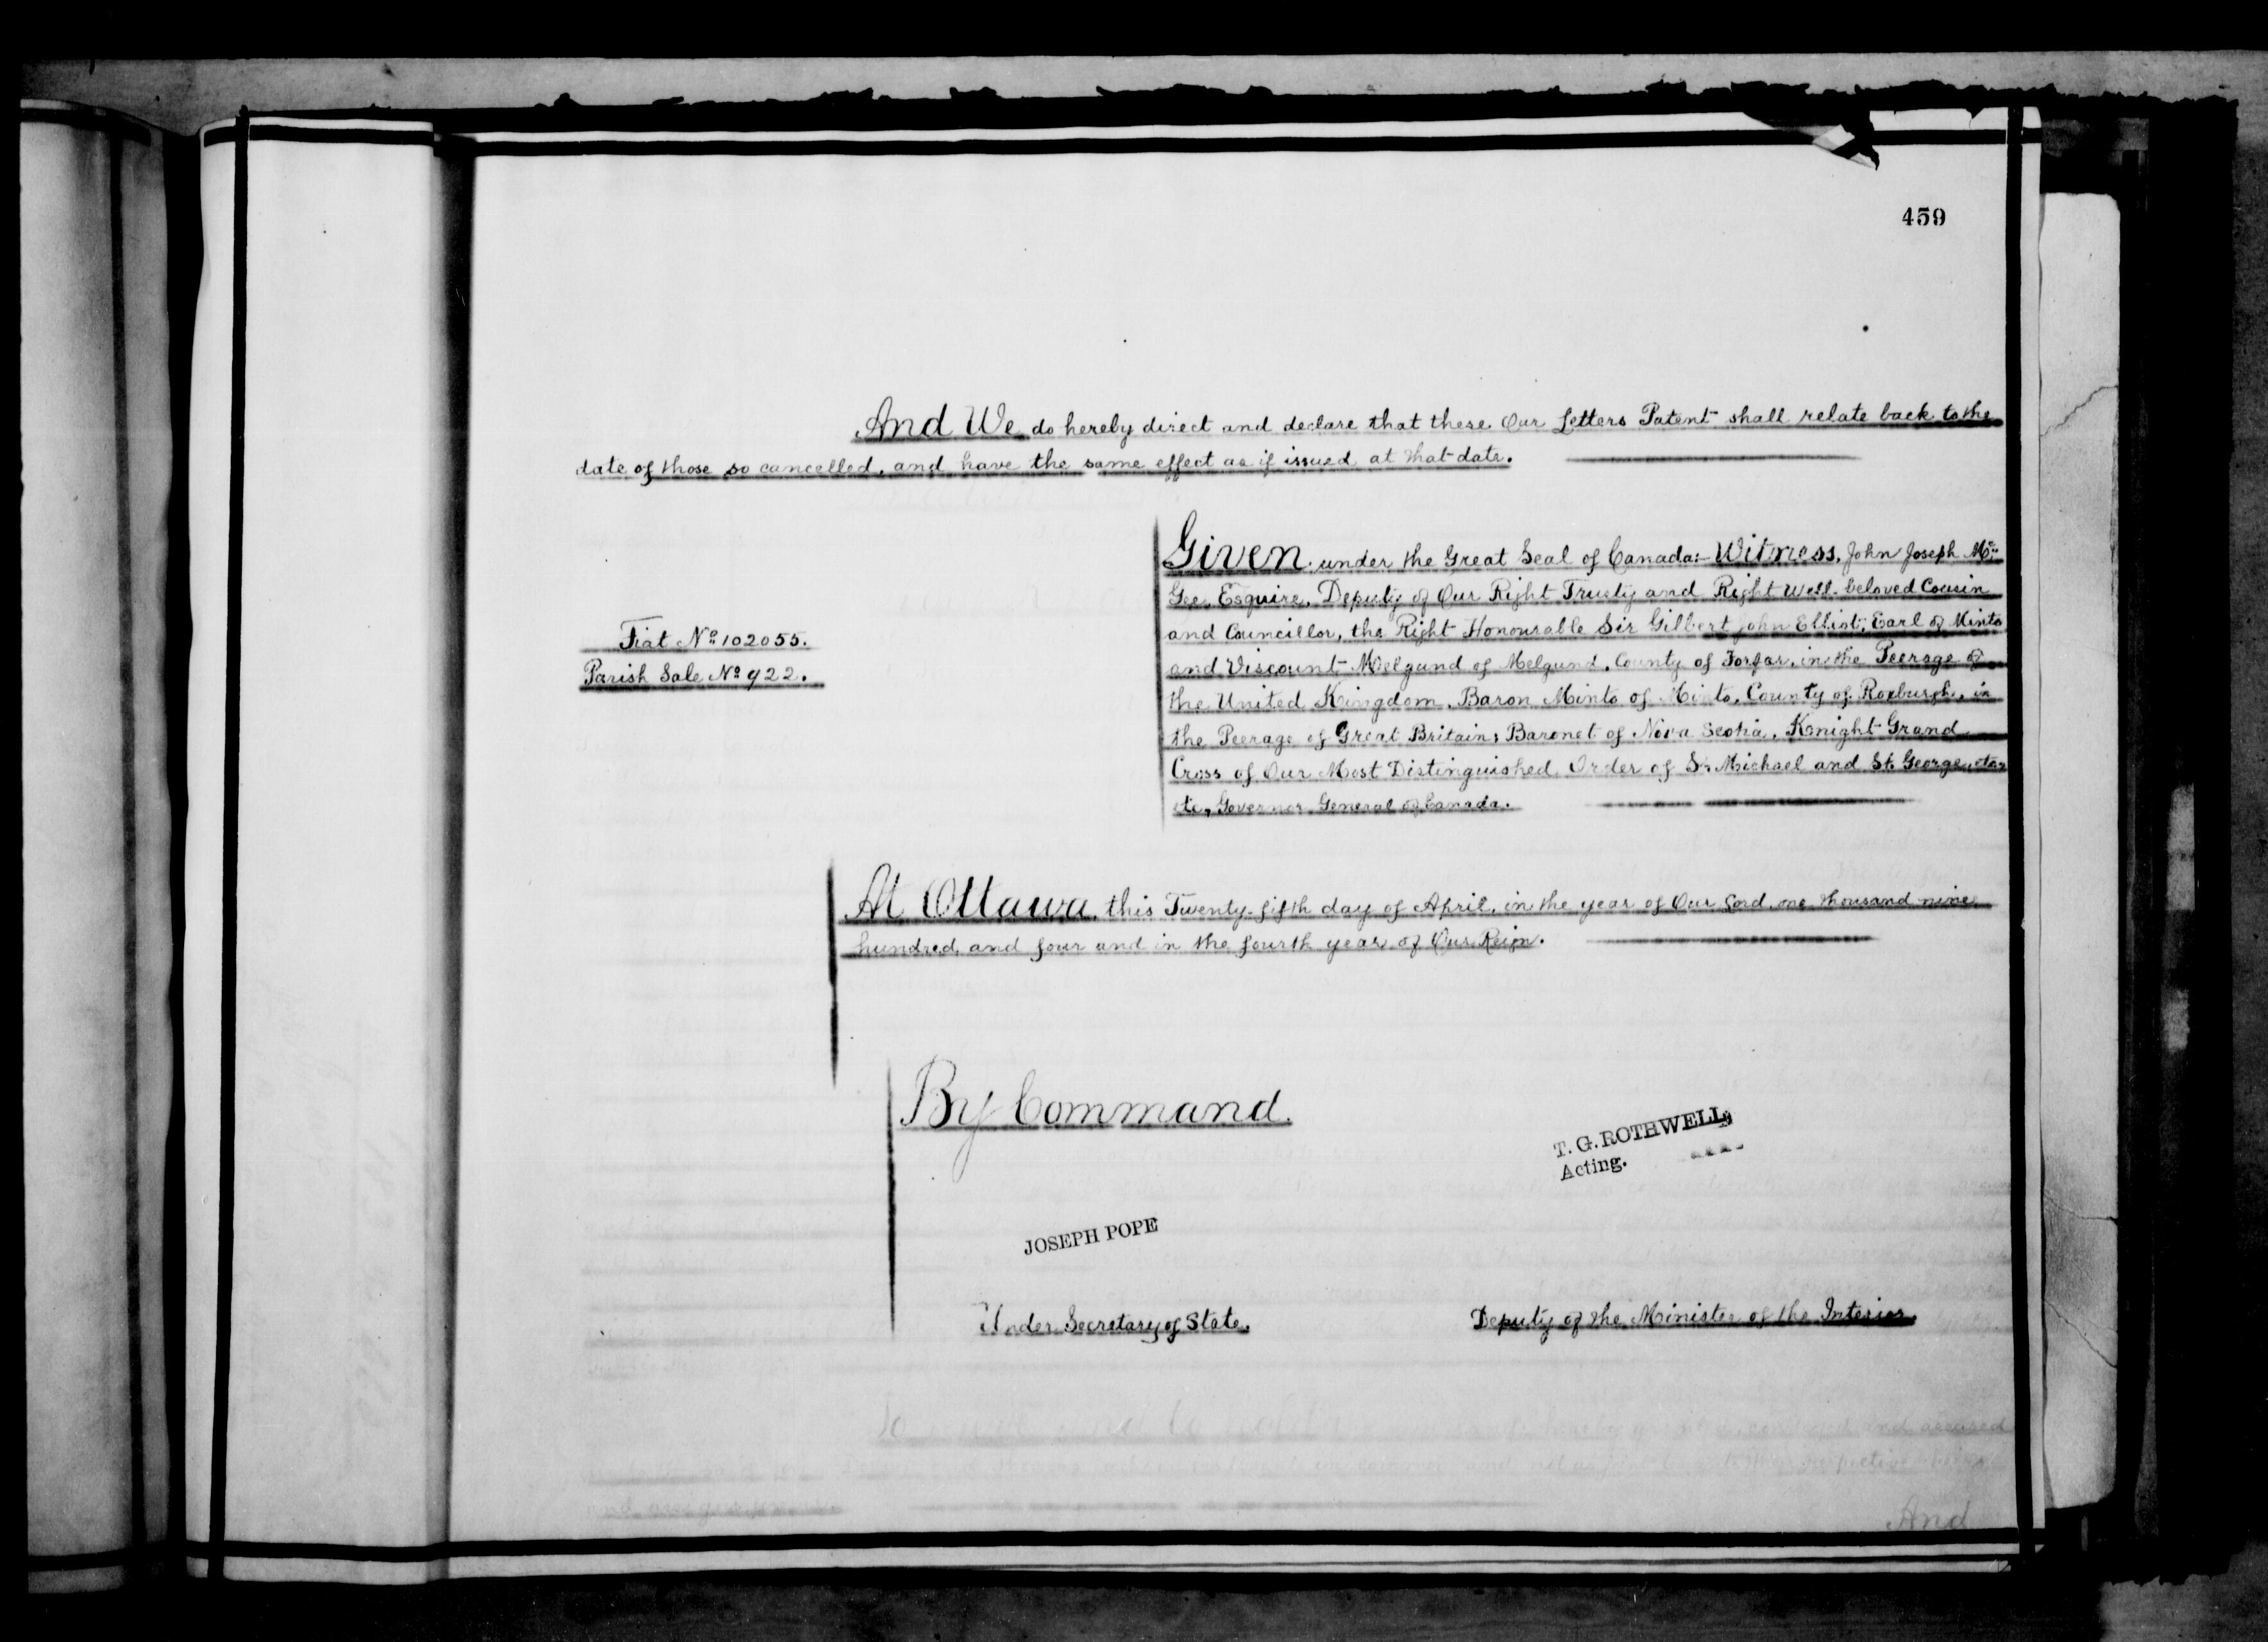 459
And We do hereby direct and declare that these Our Letters Patent shall relate back to the
date of those so cancelled, and have the same effect as if issued at that date.
Given under the Great Seal of Canada:- Witness, John Joseph Mc
Gee, Esquire, Deputy of Our Right Trusty and Right Well-beloved Cousin
and Councillor, the Right Honourable Sir Gilbert John Elliot, Earl of Minto
and Viscount Melgund of Melgund, County of Forfar, in the Peerage of
the United Kingdom, Baron Minto of Minto, County of Roxburgh, in
the Peerage of Great Britain, Baronet of Nova Scotia, Knight Grand
Cross of Our Most Distinguished Order of St. Michael and St. George, etc.,
etc., Governor General of Canada.
Fiat No 102055.
Parish Sale No 922.
At Ottawa, this Twenty-fifth day of April, in the year of Our Lord, one thousand nine
hundred and four and in the fourth year of Our Reign.
By Command.
T. G. ROTHWELL,
Acting.
JOSEPH POPE
Under Secretary of State.
Deputy of the Minister of the Interior.
And